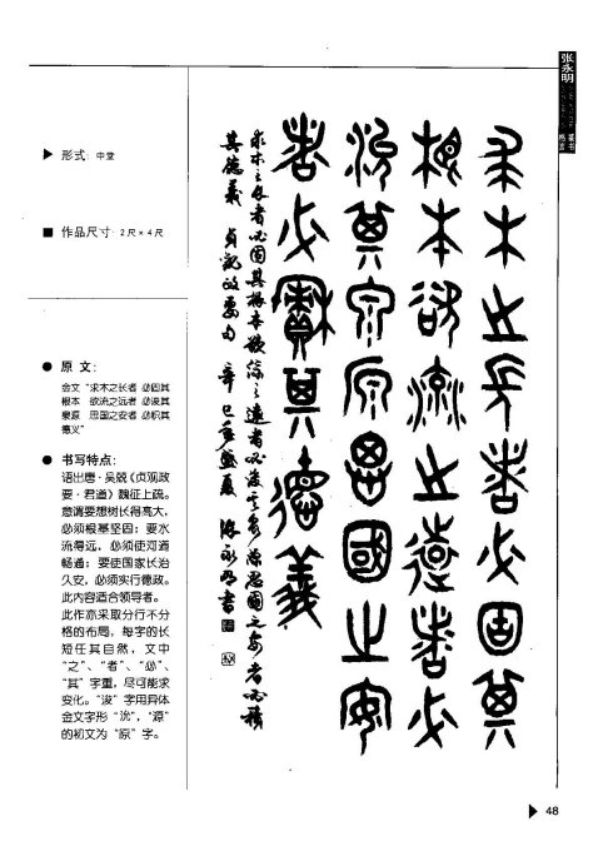 张永明
篆书
格言
▶ 形式: 中堂
■ 作品尺寸: 2尺×4尺
● 原文:
金文“求木之长者 必固其
根本 欲流之远者 必浚其
泉源 思国之安者 必积其
德义”
● 书写特点:
语出唐·吴兢《贞观政
要·君道》魏征上疏。
意谓要想树长得高大，
必须根基坚固；要水
流得远，必须使河道
畅通；要使国家长治
久安，必须实行德政。
此内容适合领导者。
此作亦采取分行不分
格的布局，每字的长
短任其自然，文中
“之”、“者”、“必”、
“其”字重，尽可能求
变化。“浚”字用异体
金文字形“㳅”，“源”
的初文为“原”字。
求木之长者必固其
根本欲流之远者必
浚其泉原思国之安
者必积其德义
求木之长者必固其根本欲流之远者必浚其泉源思国之安者必积
其德义 贞观政要句 辛巳年盛夏 张永明书
▶ 48